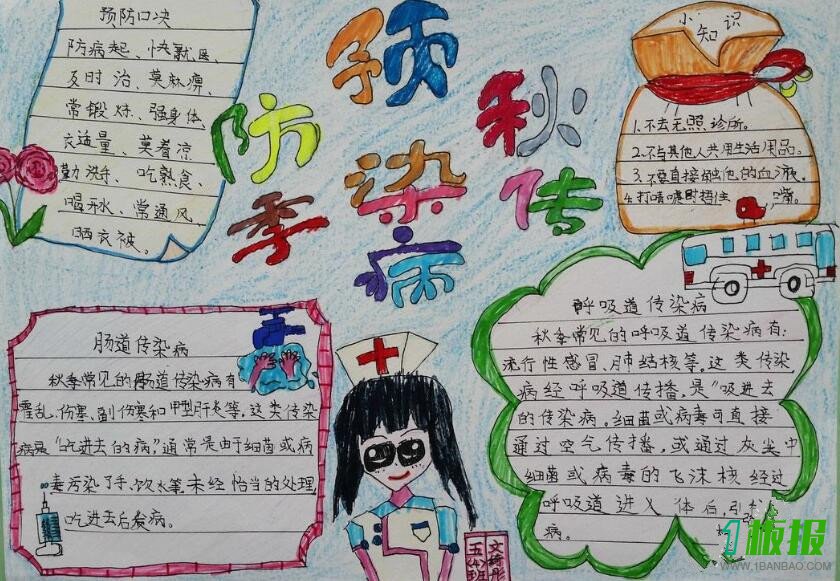 预防口决
防病起、快就医、
及时治、莫麻痹、
常锻炼、强身体、
衣适量、莫着凉
勤洗手、吃熟食、
喝开水、常通风、
晒衣被。
预防秋季传染病
小知识
1.不去无照诊所。
2.不与其他人共用生活用品。
3.不要直接触他的血液。
4.打喷嚏时捂住嘴。
肠道传染病
秋季常见的肠道传染病有
霍乱、伤寒、副伤寒和甲型肝炎等。这类传染
病是“吃进去的病”通常是由于细菌或病
毒污染了手、饮水等,未经恰当的处理,
吃进去后发病。
呼吸道传染病
秋季常见的呼吸道传染病有:
流行性感冒、肺结核等。这类传染
病经呼吸道传播,是“吸进去
的传染病。细菌或病毒可直接
通过空气传播,或通过灰尘中
细菌或病毒的飞沫核经过
呼吸道进入体后,引
病。
五(3)班
1板报
WWW.1BANBAO.COM